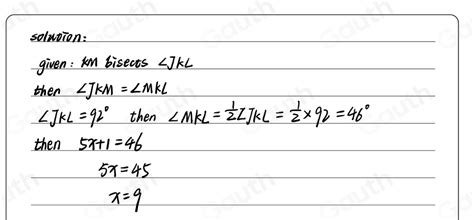 solution:
given: KM bisects ∠JKL
then ∠JKM = ∠MKL
∠JKL = 92° then ∠MKL = 1/2∠JKL = 1/2 × 92 = 46°
then 5x+1 = 46
5x = 45
x = 9
Gauth